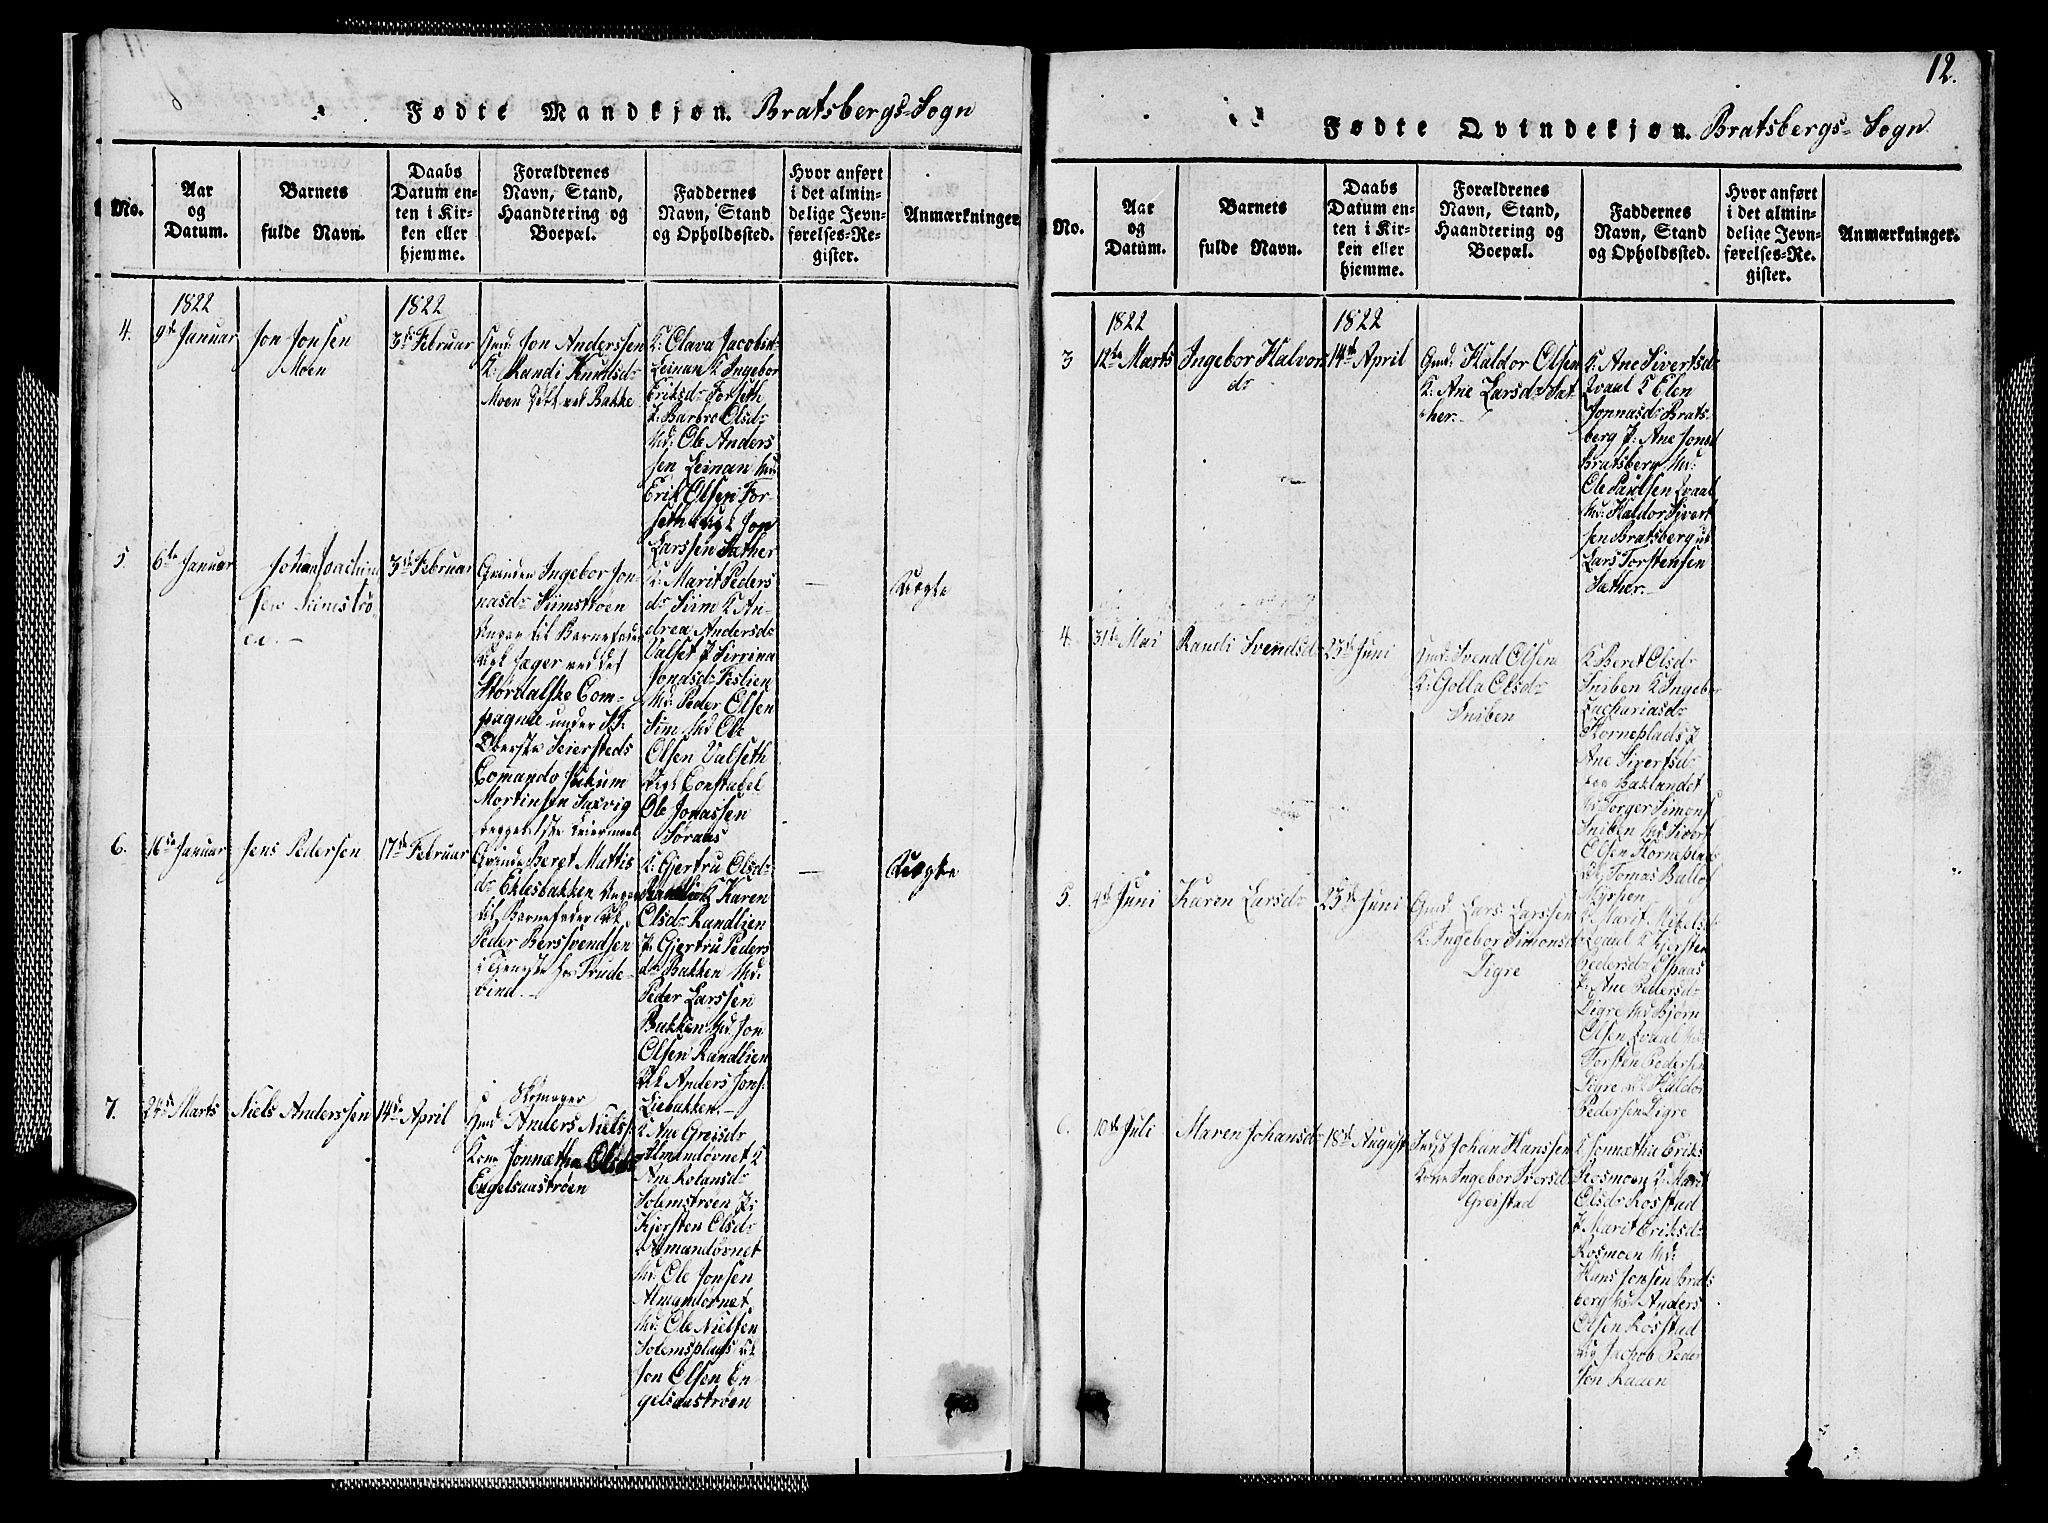 Fødte Mandkjøn. Bratsbergs=Sogn
No.
Aar og Datum.
Barnets fulde Navn.
Daabs Datum enten i Kirken eller hjemme.
Forældrenes Navn, Stand, Haandtering og Boepæl.
Faddernes Navn, Stand og Opholdssted.
Hvor anført i det almindelige Jevnførelses-Register.
Anmærkninger.
1822
1822
4.
9de Januar
Jon Jonsen
Moen
3de Februar
Gmd Jon Anderssen
K: Randi Knudsd:
Moen ved Bakke
K: Olava Jacobsd:
Leinan K Ingebor
Eriksd: Forseth
P: Barbro Olsd:
Md: Ole Anders
sen Leinan Md:
Erik Olsen For-
seth Jon
Larssen Sæther
5.
6te Januar
Johan Joachim
sen Siimstrø
en.
3de Februar
Qvinden Ingebor Jo-
nasd: Siimstrøen
til Barnefader
Jæger ved det
Størdalske Com-
pagnie under
Oberste Seiersteds
Comando
Mortinsen Saxvig
K: Marit Peders
d: Siim K An-
drea Andersd:
Valset P Sirrina
Jonasd: Teslien
Md: Peder Olsen
Siim Md Ole
Olsen Valseth
Constabel
Ole Jonassen
Soraas
Uægte
6.
16de Januar
Jens Pedersen
17de Februar
Qvinde Beret Mattis
d: Eklesbakken
til Barnefader
Peder Berssvendsen
i Tjeneste hos Trude-
vind.
K: Gjertru Olsd:
K Karen
Olsd: Randlien
P: Gjertru Peders
d: Bakken Md:
Peder Larssen
Bakken Md: Jon
Olsen Randlien
Anders Jons.
Liebakken.
Uægte
7.
24de Marts
Niels Anderssen
14de April
Skomager
Gmd Anders Niels
Kone Jonnætha Olsd:
Engelsaastrøen
K: Ane Greisd:
Almandøvnet K
Ane Rolansd:
Solemstrøen P:
Kjersten Olsd:
Almandøvnet
Md: Ole Jonsen
Almandøvnet
Md: Ole Nielsen
Solemsplads
Jon Olsen En
gelsaastrøen
12.
Fødte Qvindekjøn. Bratsbergs=Sogn
No.
Aar og Datum.
Barnets fulde Navn.
Daabs Datum enten i Kirken eller hjemme.
Forældrenes Navn, Stand, Haandtering og Boepæl.
Faddernes Navn, Stand og Opholdssted.
Hvor anført i det almindelige Jevnførelses-Register.
Anmærkninger.
1822
1822
3
12te Marts
Ingebor Halvors
d:
14de April
Gmd: Haldor Olsen
K: Ane Larsd: Sæt
her.
K: Ane Sivertsd:
Qvaal K Elen
Jonnasd: Brats-
berg P: Ane Jonsd
Bratsberg Md:
Ole Paulsen Qvaal
Md: Haldor Sivert
sen Bratsberg
Lars Torstensen
Sæther.
4.
31te Mai
Randi Svendsd:
23de Juni
Gmd: Svend Olsen
K: Golla Olsd:
Sniben
K Beret Olsd:
Sniben K Ingebor
Zachariasd:
Korneplads P
Ane Sivertsd:
Baklandet
Md: Torger Simons
Sniben Md Sivert
Olsen
Tomas
5.
4de Juni
Karen Larsd:
23de Juni
Gmd: Lars Larssen
K: Ingebor Simonsd:
Digre
K: Marit Mikelsd:
Qvaal K Kjersten
Pedersd: Espaas
P: Ane Pedersd:
Digre Md: Bjørn
Olsen Qvaal Md:
Torsten Pedersen
Digre Haldor
Pedersen Digre
6.
10de Juli
Maren Johansd:
18de August
Johan Hanssen
Kone Ingebor Iversd
Greistad
K Jonnætha Eriks
Rosmoen K: Marit
Olsd: Rosstad
P: Marit Eriksd:
Rosmoen Md:
Hans Jonsen Brats
berg Anders
Olsen Rosstad
Jachob Peder
sen